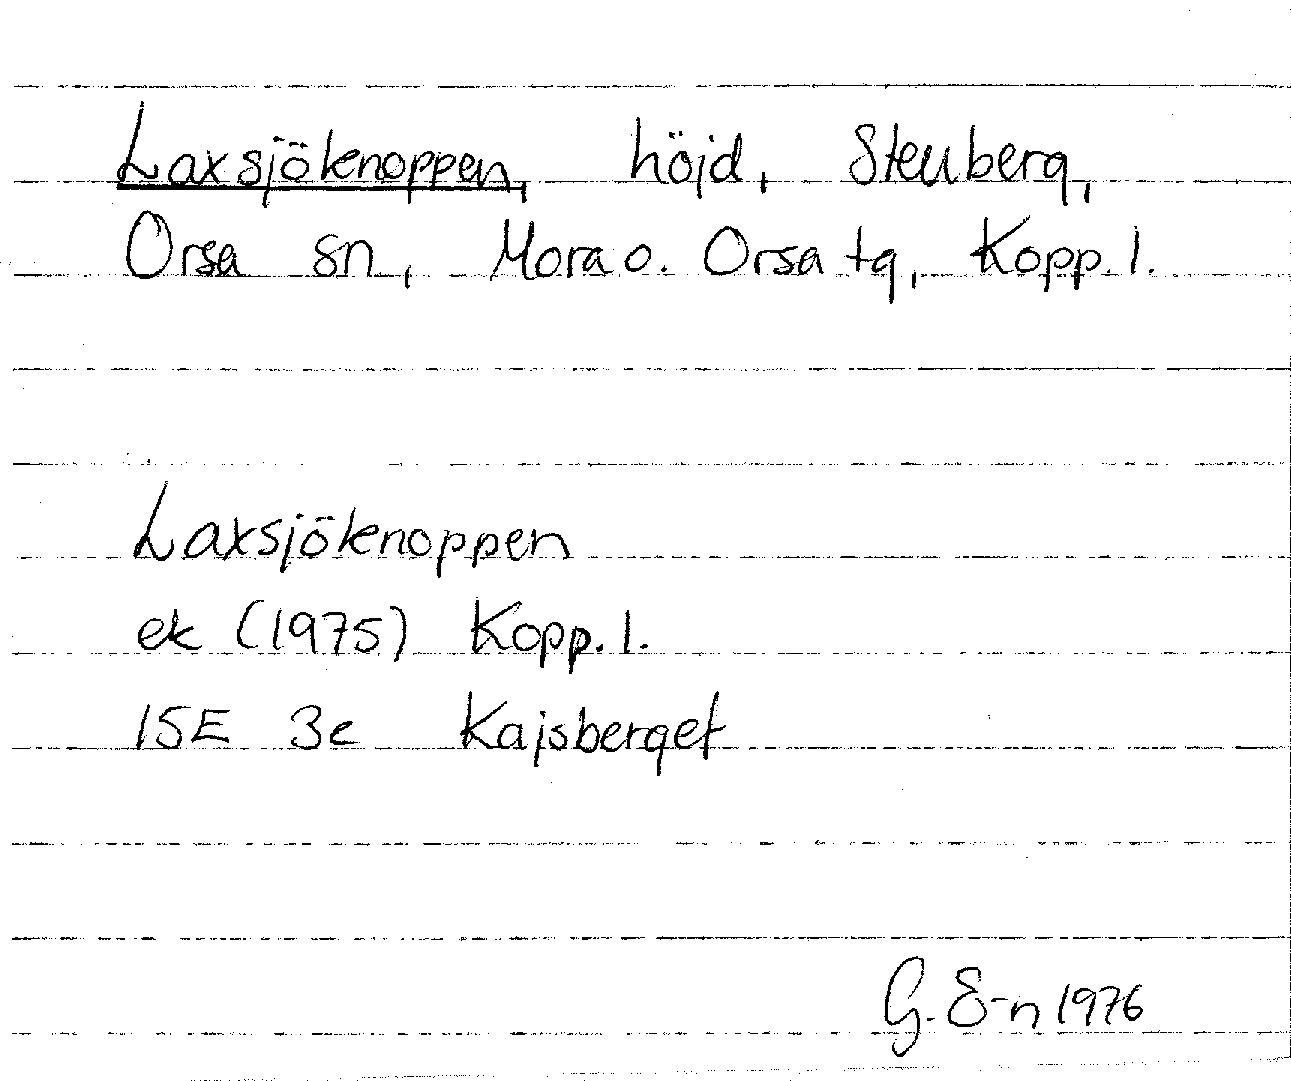 Laxsjöknoppen, höjd, Stenberg,
Orsa sn, Mora o. Orsa tg, Kopp. l.
Laxsjöknoppen
ek (1975) Kopp. l.
15E 3e Kajsberget
G. E-n 1976